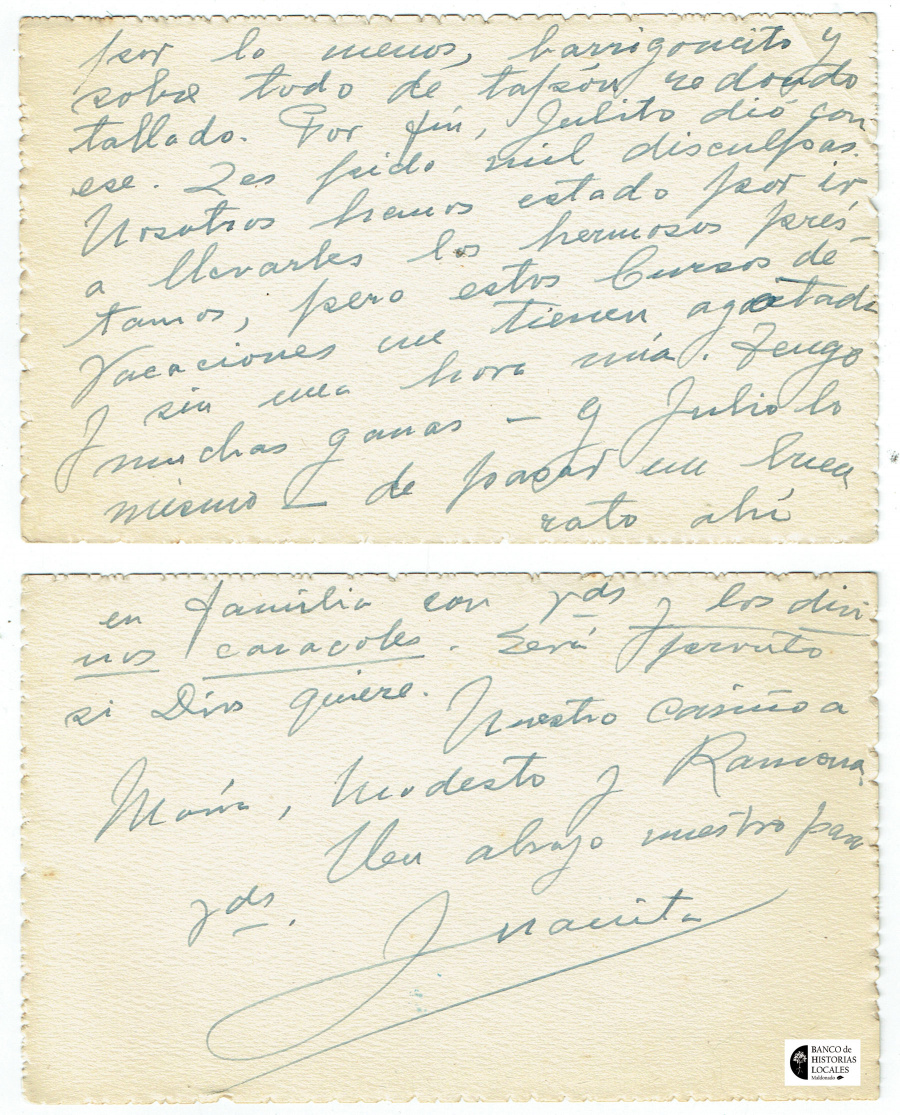 por lo menos, barrigoncito y
sobre todo de tapón redondo
tallado. Por fín, Julito dió con
ese. Les pido mil disculpas.
Nosotros hemos estado por ir
a llevarles los hermosos prés-
tamos, pero estos Cursos de
Vacaciones me tienen agotada
y sin una hora mía. Tengo
muchas ganas – y Julio lo
mismo – de pasar un buen
rato ahí
en familia con yds y los divi
nos caracoles. Será pronto
si Dios quiere.
Nuestro cariño a
María, Modesto y Ramona.
Un abrazo nuestro para
yds.
Juanita
BANCO de
HISTORIAS
LOCALES
Maldonado